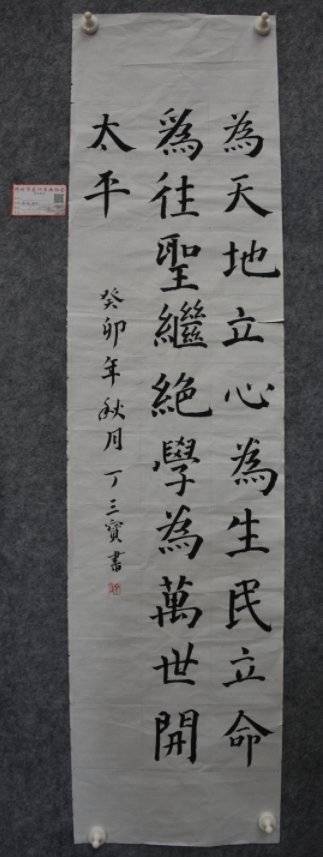 為天地立心為生民立命
為往聖繼絕學為萬世開
太平
癸卯年秋月丁三寶書